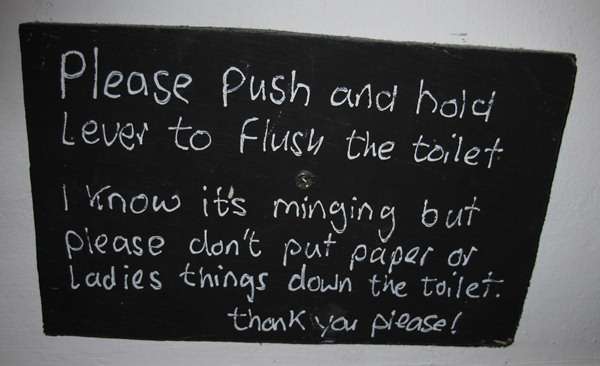 Please push and hold
Lever to Flush the toilet
I know it's minging but
please don't put paper or
Ladies things down the toilet.
thank you please!